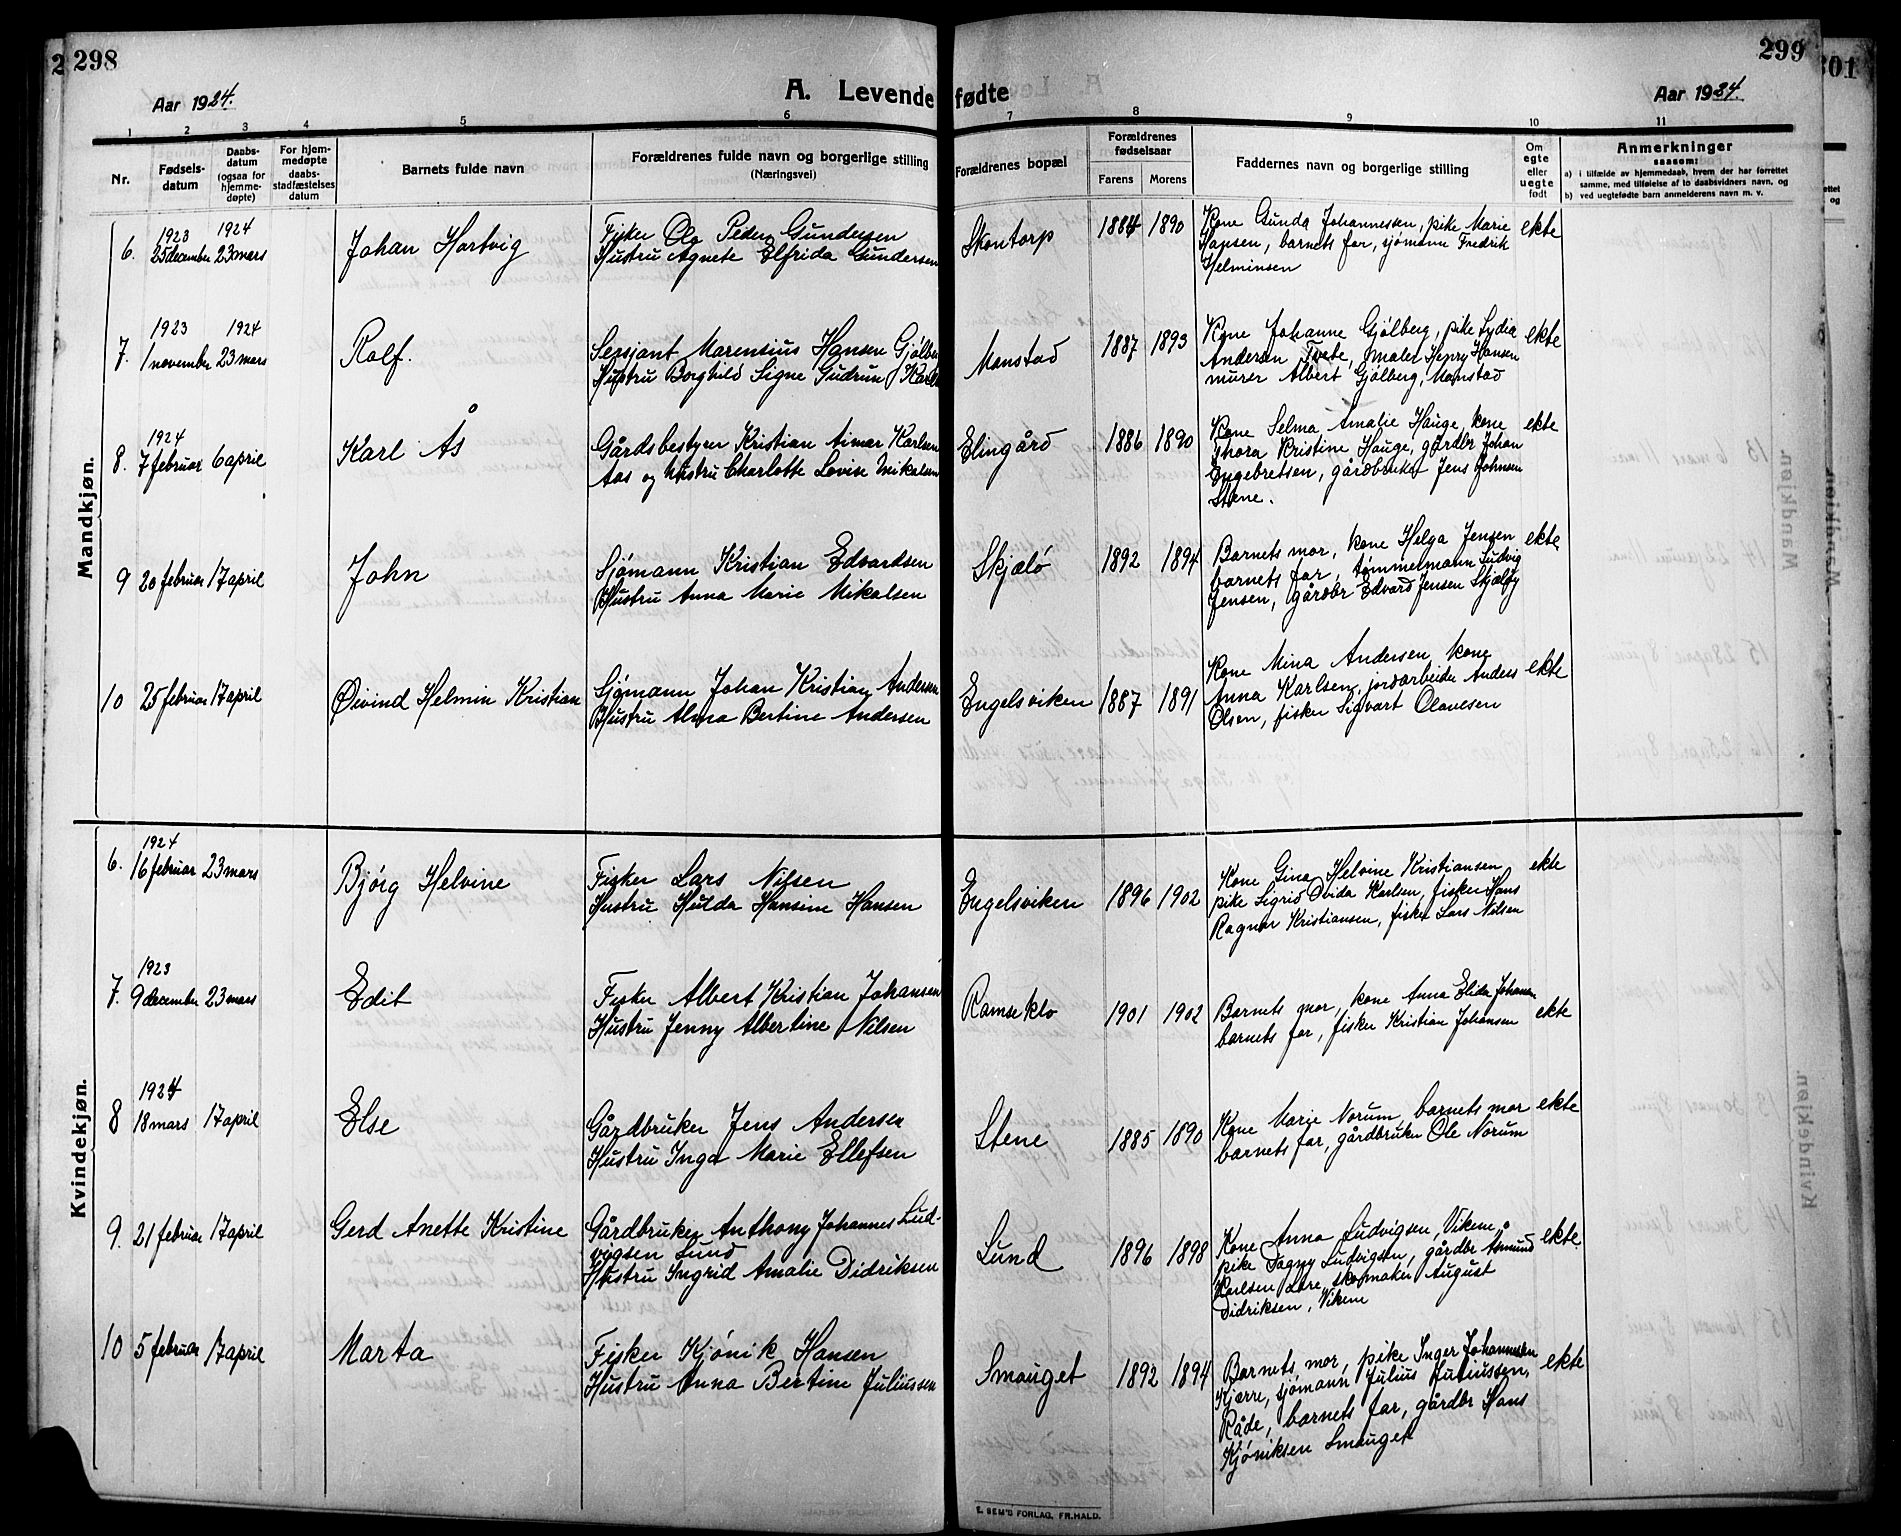 298
299
301
Aar 1924.
A. Levendefødte
Aar 1924.
1 2 3 4 5 6 7 8 9 10 11
Nr.
Fødsels-datum
Daabs-datum (ogsaa for hjemme-døpte)
For hjem-medøpte daabs-stadfæstelses datum
Barnets fulde navn
Forældrenes fulde navn og borgerlige stilling
(Næringsvei)
Forældrenes bopæl
Forældrenes fødselsaar
Farens Morens
Faddernes navn og borgerlige stilling
Om egte eller uegte født
Anmerkninger
saasom:
a) i tilfælde av hjemmedaab, hvem der har forrettet samme, med tilføielse af to daabsvidners navn, og
b) ved uegtefødte barn anmelderens navn m. v.
Mandkjøn.
1923 1924
6. 25 december 23 mars Johan Hartvig
Fisker Ole Peder Gundersen
Hustru Agnete Elfrida Gundersen
Skontorp 1884 1890
Kone Gunda Johannessen, pike Marie
Hansen, barnets far, sjømann Fredrik
Helminsen
ekte
1923 1924
7. 1 november 23 mars Rolf.
Sersjant Marensius Hansen Gjølber
Hustru Borghild Signe Gudrun
Manstad 1887 1893
Kone Johanne Gjølberg, pike Lydia
Andersen Tvete, maler Henry Hansen
murer Albert Gjølberg, Manstad
ekte
1924
8. 7 februar 6 april Karl Ås
Gårdsbestyrer Kristian Aimar Karlsen
Aas og hustru Charlotte Lovise Mikalsen
Elingård 1886 1890
Kone Selma Amalie Hauge, kone
Thora Kristine Hauge, gårdbr Johan
Engebretsen, gårdbruker Jens Johnsen
Stene.
ekte
9 20 februar 17 april John
Sjømann Kristian Edvardsen
Hustru Anna Marie Mikalsen
Skjælø 1892 1894
Barnets mor, kone Helga Jensen
barnets far, tømmermann Ludvig
Jensen, gårdbr Edvard Jensen Skjælø
ekte
10 25 februar 17 april Øivind Helmin Kristian
Sjømann Johan Kristian Andersen
Hustru Alma Bertine Andersen
Engelsviken 1887 1891
Kone Mina Andersen, kone
Anna Karlsen, jordarbeider Anders
Olsen, fisker Sigvart Olavesen
ekte
Kvindekjøn.
1924
6. 16 februar 23 mars Bjørg Helvine
Fisker Lars Nilsen
Hustru Hulda Hansine Hansen
Engelsviken 1896 1902
Kone Gina Helvine Kristiansen
pike Sigrid Ovida Karlsen, fisker Hans
Ragnar Kristiansen, fisker Lars Nilsen
ekte
1923
7. 9 december 23 mars Edit
Fisker Albert Kristian Johansen
Hustru Jenny Albertine Nilsen
Ramseklo 1901 1902
Barnets mor, kone Anna Elida Johansen
barnets far, fisker Kristian Johansen
ekte
1924
8 18 mars 17 april Else
Gårdbruker Jens Andersen
Hustru Inga Marie Ellefsen
Stene 1885 1890
Kone Marie Norum, barnets mor
barnets far, gårdbruker Ole Norum
ekte
9. 21 februar 17 april Gerd Anette Kristine
Gårdbruker Anthony Johannes Lud-
vigsen Lund
Hustru Ingrid Amalie Didriksen
Lund 1896 1898
Kone Anna Ludvigsen, Vikene,
pike Dagny Ludvigsen, gårdbr Åsmund
Karlsen øvre, skomaker August
Didriksen, Vikene
ekte
10 5 februar 17 april Marta
Fisker Kjønik Hansen
Hustru Anna Bertine Juliussen
Smauget 1892 1894
Barnets mor, pike Inger Johannessen
Kjærre, sjømann Julius Juliussen,
Råde, barnets far, gårdbr Hans
Kjøniksen Smauget
ekte
E. SEM'S FORLAG, FR.HALD.